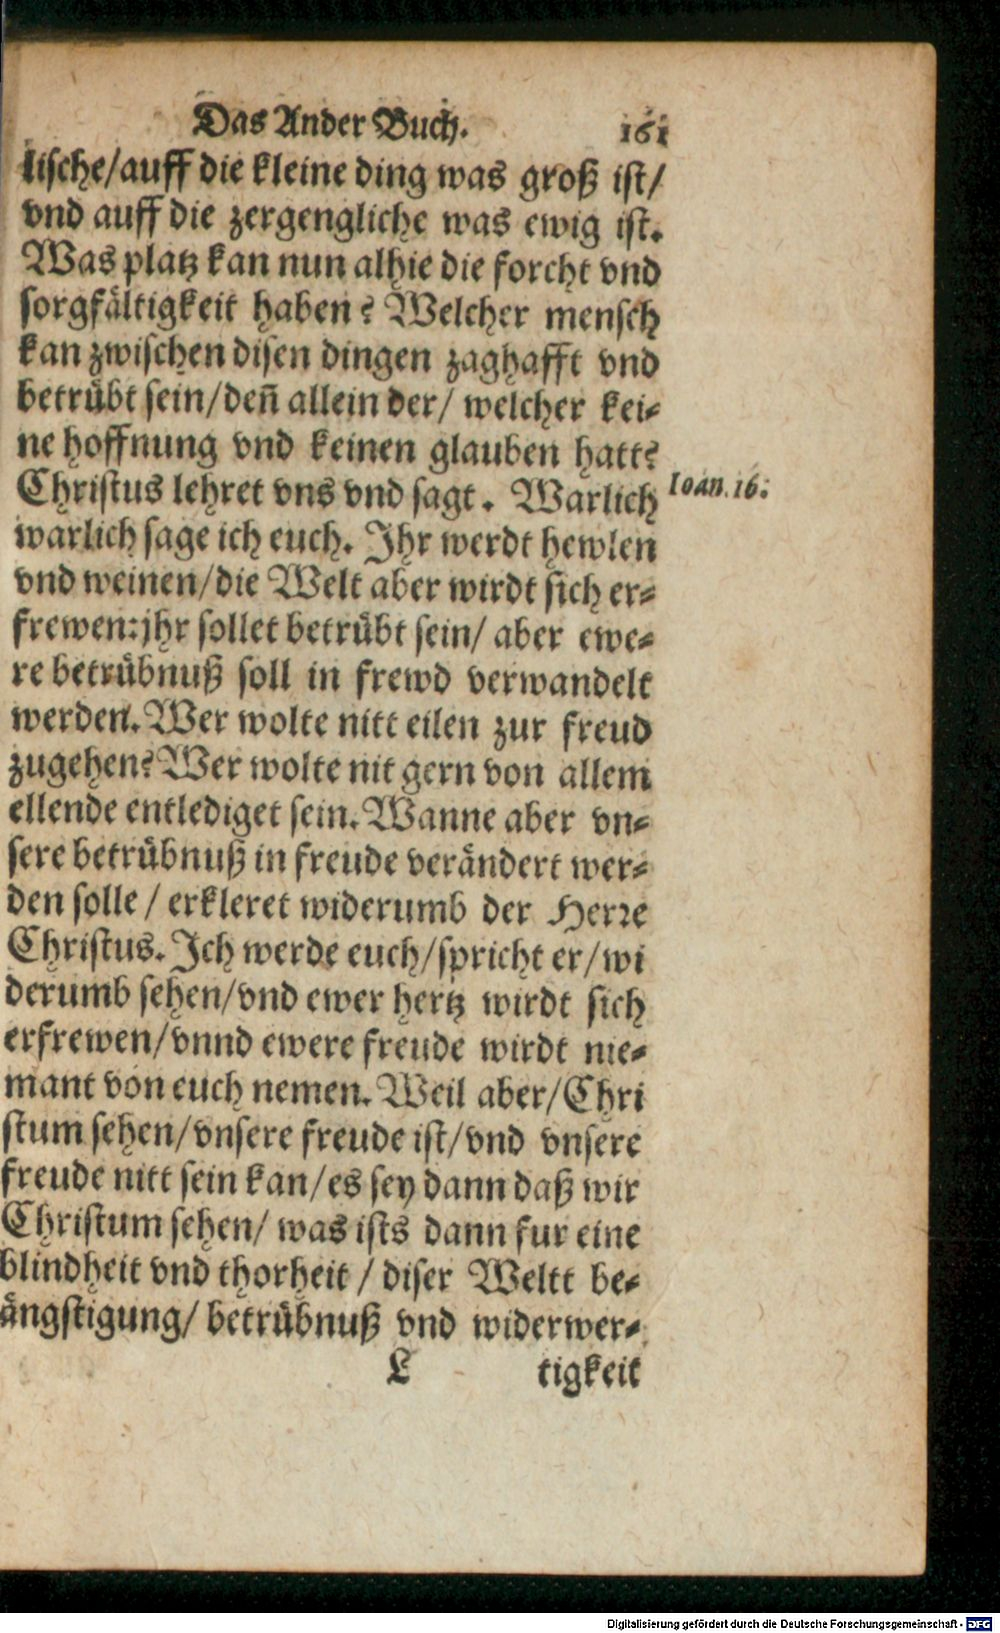 Das Ander Buch. 161
lische/auff die kleine ding was groß ist/
vnd auff die zergengliche was ewig ist.
Was platz kan nun alhie die forcht vnd
sorgfältigkeit haben? Welcher mensch
kan zwischen disen dingen zaghafft vnd
betrübt sein/deñ allein der/ welcher kei-
ne hoffnung vnd keinen glauben hatt?
Christus lehret vns vnd sagt. Warlich
Ioan. 16.
warlich sage ich euch. Ihr werdt hewlen
vnd weinen/die Welt aber wirdt sich er-
frewen: jhr sollet betrübt sein/ aber ewe-
re betrübnuß soll in frewd verwandelt
werden. Wer wolte nitt eilen zur freud
zugehen? Wer wolte nit gern von allem
ellende entlediget sein. Wanne aber vn-
sere betrübnuß in freude verändert wer-
den solle / erkleret widerumb der Herre
Christus. Ich werde euch/spricht er/wi
derumb sehen/vnd ewer hertz wirdt sich
erfrewen/vnnd ewere freude wirdt nie-
mant von euch nemen. Weil aber/Chri
stum sehen/vnsere freude ist/vnd vnsere
freude nitt sein kan/es sey dann daß wir
Christum sehen/ was ists dann fur eine
blindheit vnd thorheit / diser Weltt be-
ängstigung/ betrübnuß vnd widerwer-
L tigkeit
Digitalisierung gefördert durch die Deutsche Forschungsgemeinschaft - DFG